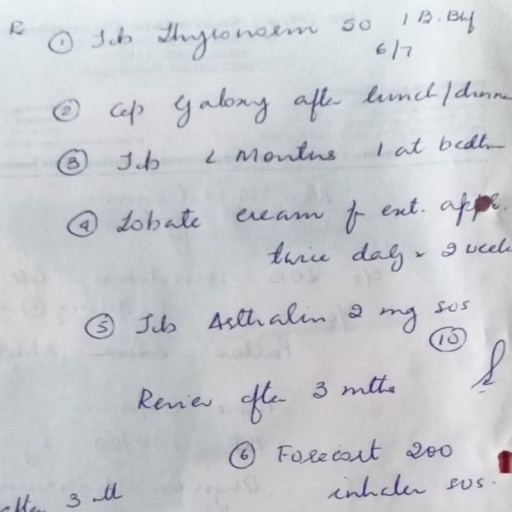 R ① Tab Thyronorm 50 1 B.Bkf
6/7
② Cap Galaxy after lunch/dinne
③ Tab L Montus 1 at bedtm
④ Lobate cream f ext. appl.
twice day x 2 week
⑤ Tab Asthalin 2 mg sos
⑩
Review after 3 mths
⑥ Foracort 200
inhaler sos.
after 3 mth